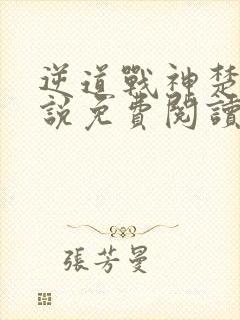 逆道戰神楚
說免費閱讀
張芳曼